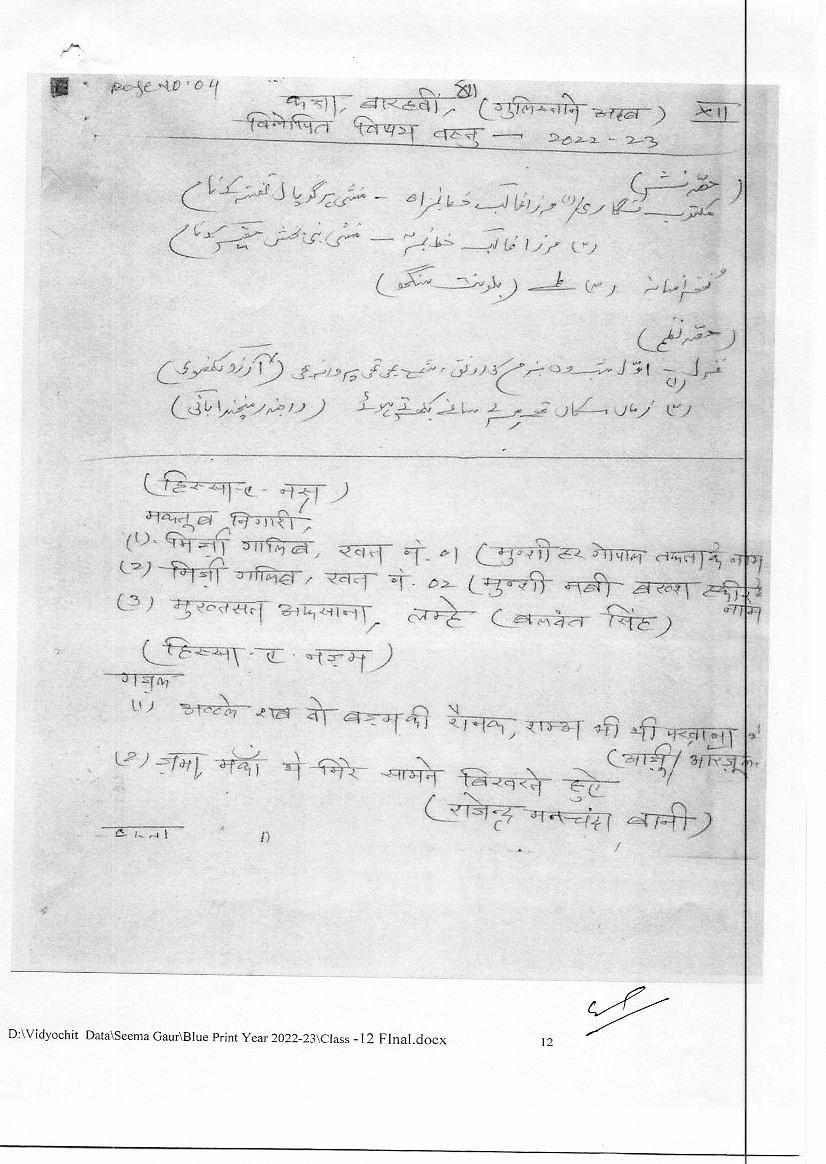 PAGE NO. 04
कक्षा, बारहवीं, XII (गुलिस्ताने अदब) XII
विलोपित विषय वस्तु — 2022-23
(حصّہ نثر)
مکتوب نگاری (۱) مرزا غالب خط نمبر ۱ — منشی ہرگوپال تفتہ کے نام
(۲) مرزا غالب خط نمبر ۲ — منشی نبی بخش حقیر کے نام
مختصر افسانہ (۳) لمحے (بلونت سنگھ)
(حصّہ نظم)
غزل (۱) اوّل شب وہ بزم کی رونق، شمع بھی تھی پروانہ بھی (آرزو لکھنوی)
(۲) زماں مکاں تھے مرے سامنے بکھرتے ہوئے (راجندر منچندا بانی)
(हिस्सा-ए-नस्र)
मकतूब निगारी,
(1). मिर्ज़ा गालिब, खत नं. 01 (मुन्शी हर गोपाल तफ्ता के नाम
(2) मिर्ज़ा गालिब, खत नं. 02 (मुन्शी नबी बख्श हकीर के नाम
(3) मुख्तसत अफसाना, लम्हे (बलवंत सिंह)
(हिस्सा-ए-नज़्म)
गज़ल
(1) अव्वले शब वो बज़्म की रौनक, शम्अ भी थी परवाना
(आर्ज़ु/आरज़ू
(2) ज़मा, मकाँ थे मिरे सामने बिखरते हुऐ
(राजेन्द्र मनचंदा बानी)
D:\Vidyochit Data\Seema Gaur\Blue Print Year 2022-23\Class -12 FInal.docx 12